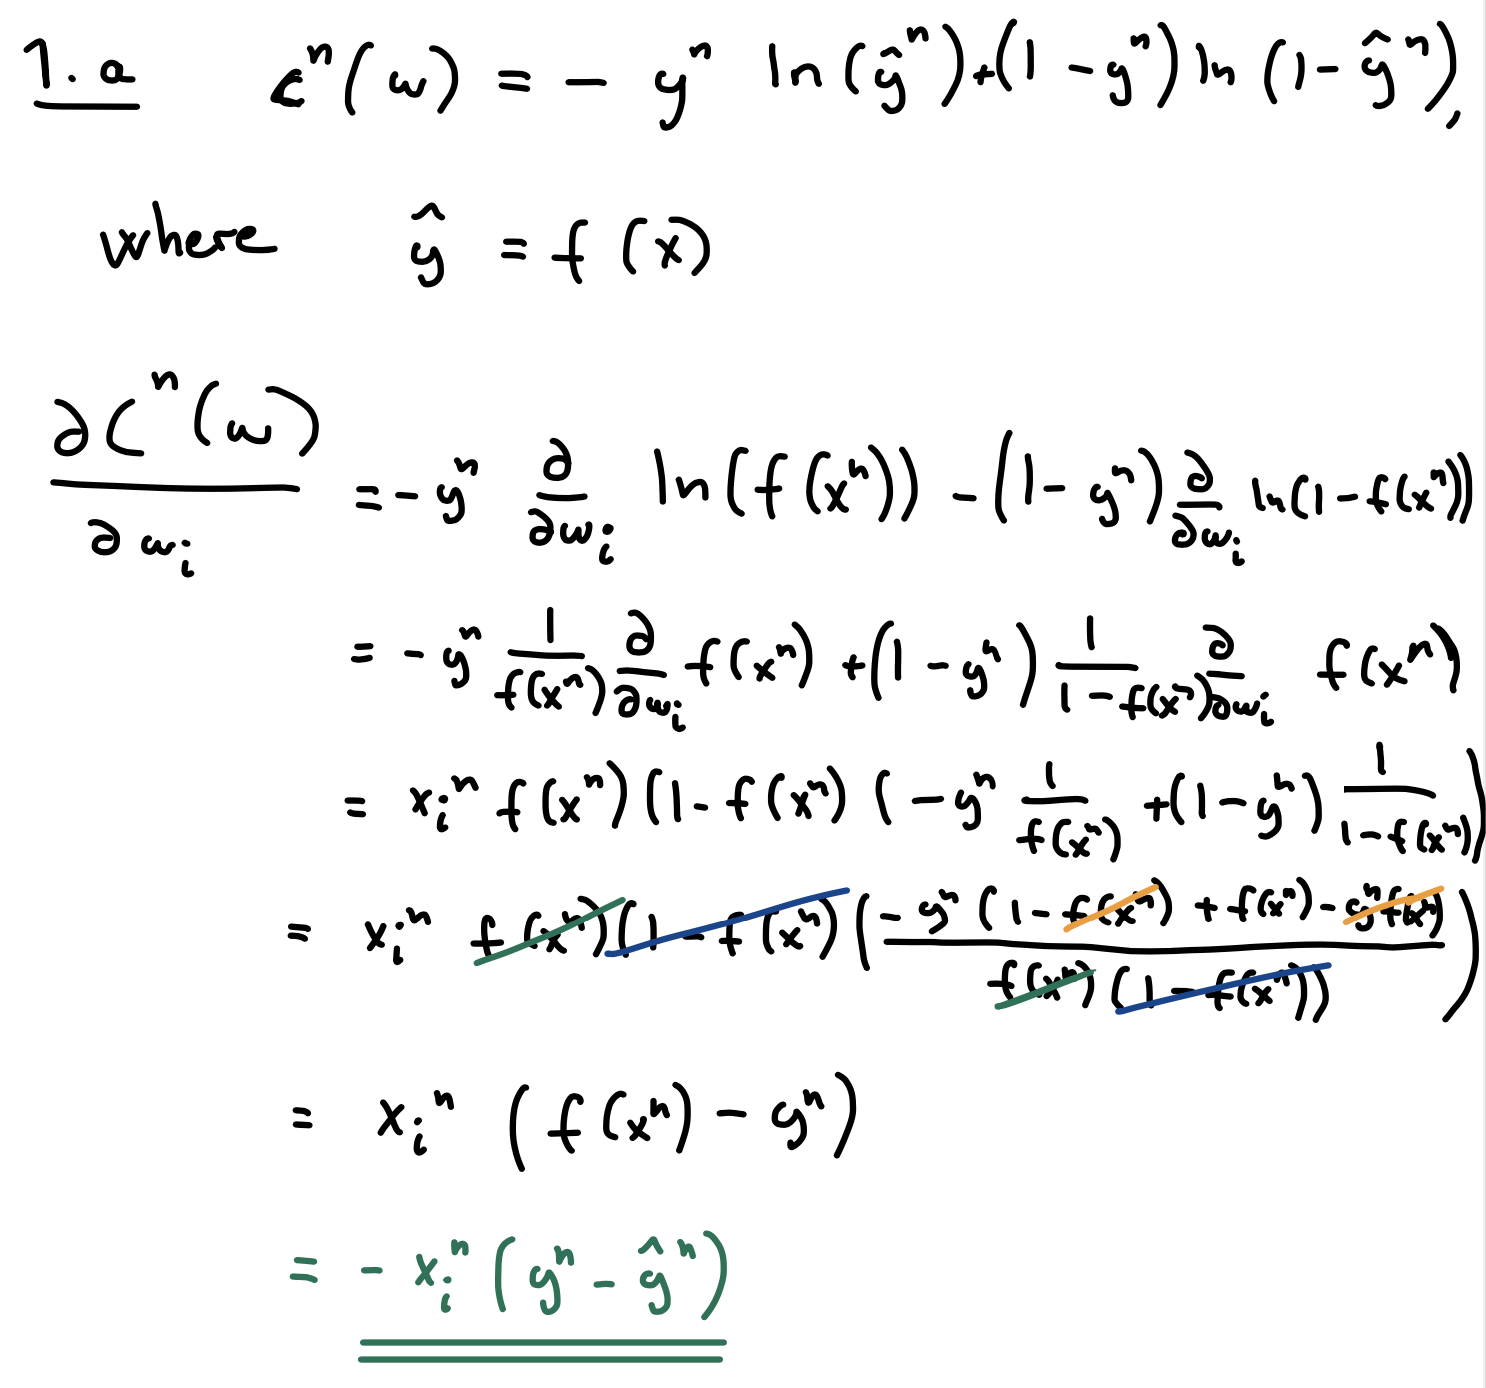 1. a C^n(w) = - y^n ln(ŷ^n)+(1 - y^n) ln (1- ŷ^n),
where ŷ = f (x)
∂C^n(w)/∂w_i = - y^n ∂/∂w_i ln(f(x^n)) - (1- y^n) ∂/∂w_i ln(1-f(x^n))
= - y^n 1/f(x^n) ∂/∂w_i f(x^n) + (1 - y^n) 1/1-f(x^n) ∂/∂w_i f(x^n)
= x_i^n f(x^n)(1- f(x^n) (- y^n 1/f(x^n) +(1-y^n) 1/1-f(x^n))
= x_i^n f(x^n)(1 - f(x^n) (- y^n (1 - f(x^n) + f(x^n) - y^n f(x^n)/f(x^n) (1 - f(x^n)))
= x_i^n (f(x^n) - y^n)
= - x_i^n (y^n - ŷ^n)